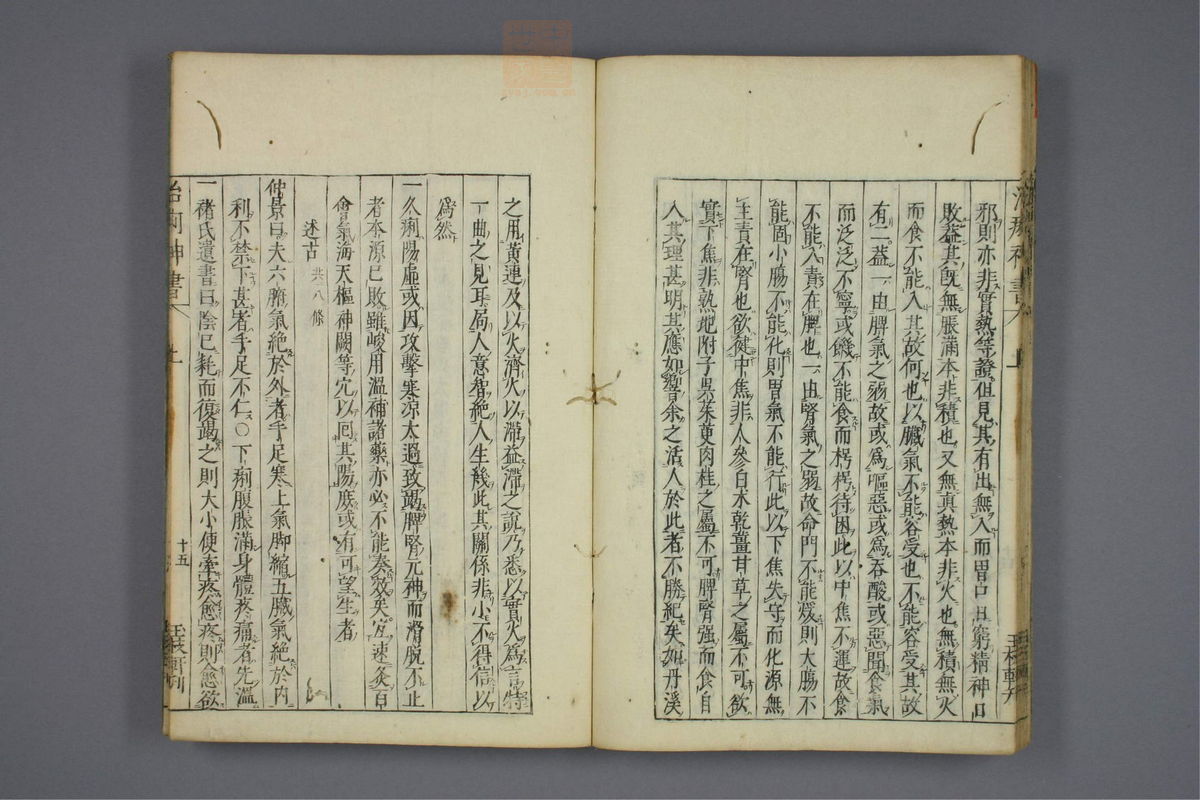 邪則亦非實熱等證但見其有出無入而胃口日窮精神日
敗蓋其旣無脹滿本非積也又無真熱本非火也無積無火
而食不能入其故何也以臟氣不能容受也不能容受其故
有二蓋一由脾氣之弱故或爲嘔惡或爲吞酸或惡聞食氣
而泛泛不寧或饑不能食而枵枵待困此以中焦不運故食
不能入責在脾也一由腎氣之弱故命門不能煖則大腸不
能固小腸不能化則胃氣不能行此以下焦失守而化源無
主責在腎也欲健中焦非人參白朮乾薑甘草之屬不可欲
實下焦非熟地附子吳茱萸肉桂之屬不可脾腎强而食自
入其理甚明其應如響余之活人於此者不勝紀矣如丹溪
之用黃連及以火濟火以滯益滯之說乃悉以實火爲言特
一曲之見耳局人意智絶人生幾此其關係非小不得信以
爲然
一久痢陽虛或因攻擊寒涼太過致竭脾腎元神而滑脫不止
者本源已敗雖峻用溫補諸藥亦必不能奏效矣宜速灸百
會氣海天樞神闕等穴以囘其陽庶或有可望生者
述古 共八條
仲景曰夫六腑氣絶於外者手足寒上氣脚縮五臟氣絶於内
利不禁下甚者手足不仁○下痢腹脹滿身體疼痛者先溫
一褚氏遺書曰陰已耗而復竭之則大小便牽疼愈疼則愈欲
十五